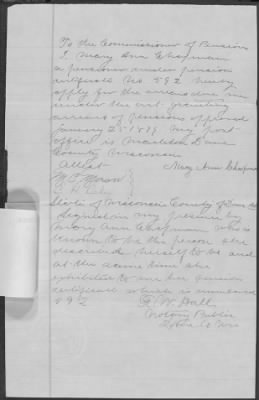 To the Commissioner of Pensions
I, Mary Ann Chapman
a pensioner under pension
certificate No. 592 hereby
apply for the arrears due me
under the act granting
arrears of pensions approved
January 25 1879 My post
office is Madison Dane
County Wisconsin
Attest Mary Ann Chapman
State of Wisconsin County of Dane
Signed in my presence by
Mary Ann Chapman who is
known to me the person she
described herself to be and
at the same time she
exhibited to me her pension
certificate which is numbered
592
W. Hall
Notary Public